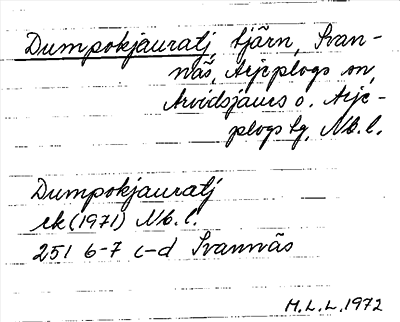 Dumpokjauratj, tjärn, Svan-
näs, Arjeplogs sn,
Arvidsjaurs o. Arje-
plogs tg, Nb. l.
Dumpokjauratj
ek (1971) Nb. l.
251 6-7 c-d Svannäs
M. L. L. 1972